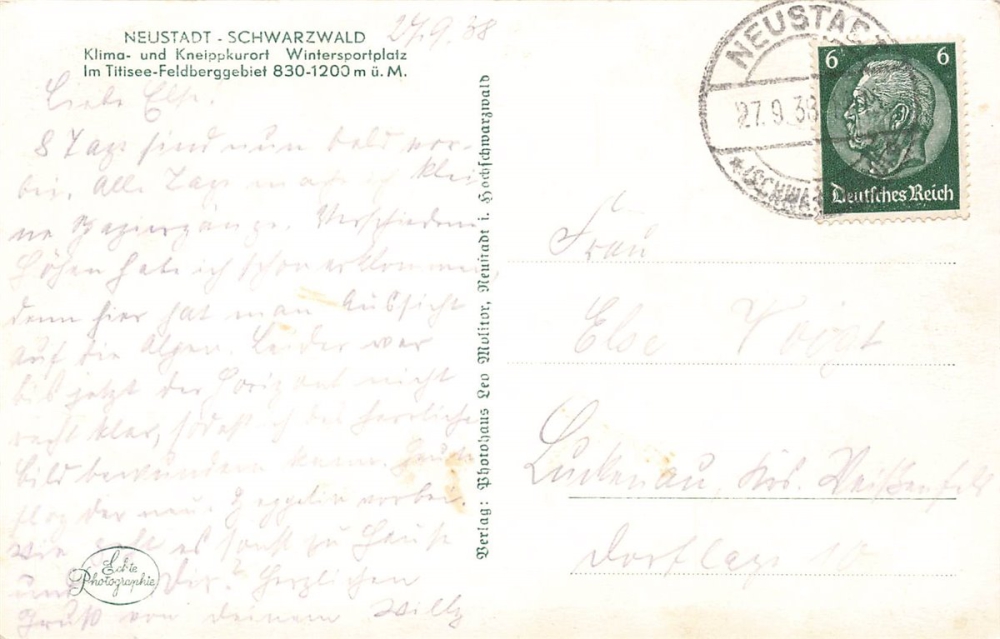 NEUSTADT - SCHWARZWALD
Klima- und Kneippkurort Wintersportplatz
Im Titisee-Feldberggebiet 830-1200 m ü. M.
27.9.38
Liebe Else!
8 Tage sind nun bald vor-
bei. Alle Tage mache ich klei-
ne Spaziergänge. Verschiedene
Höhen habe ich schon erklommen,
denn hier hat man Aussicht
auf die Alpen. Leider war
bis jetzt der Horizont nicht
recht klar, sodaß ich das herrliche
Bild bewundern kann. Heute
flog der neue Zeppelin vorbei.
Wie geht es sonst zu Hause
und Dir? Herzlichen
Gruß von deinem Willy
Echte Photographie
Verlag: Photohaus Leo Molitor, Neustadt i. Hochschwarzwald
NEUSTADT
27.9.38
(SCHWARZ
6 6
Deutsches Reich
Frau
Else Voigt
Luckenau, Krs. Weißenfels
Dorflage 10